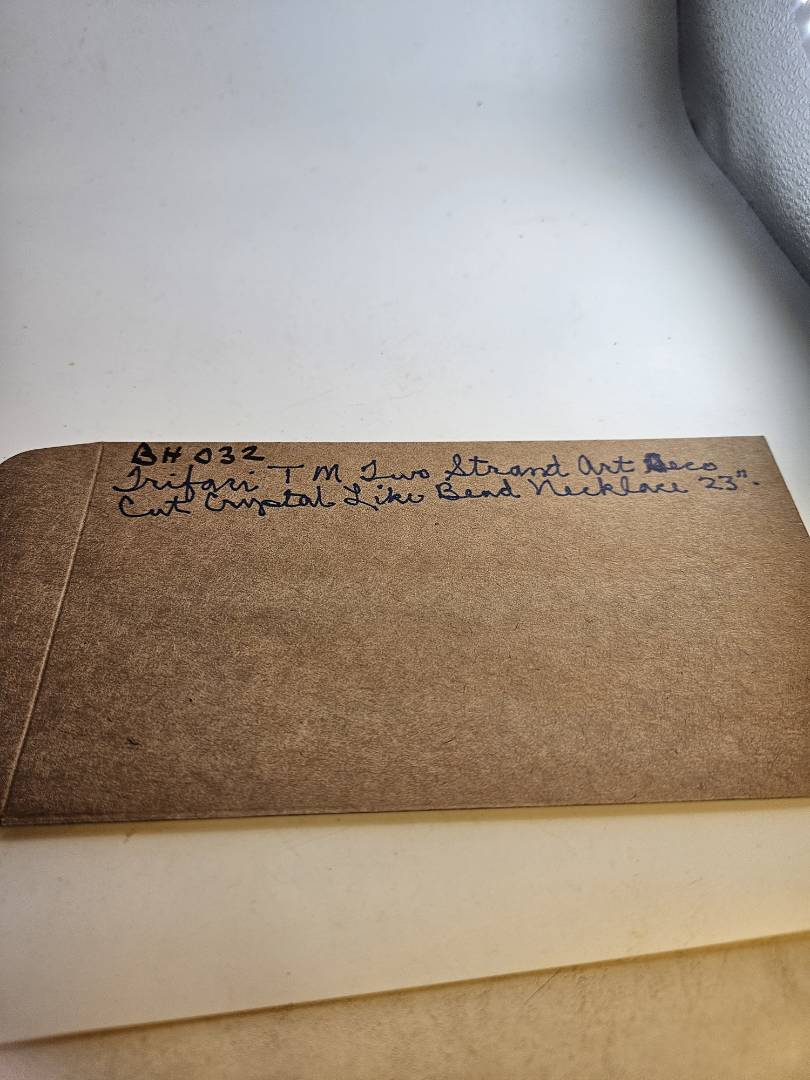 BH 032
Trifari TM Two Strand Art Deco
Cut Crystal Like Bead Necklace 23".